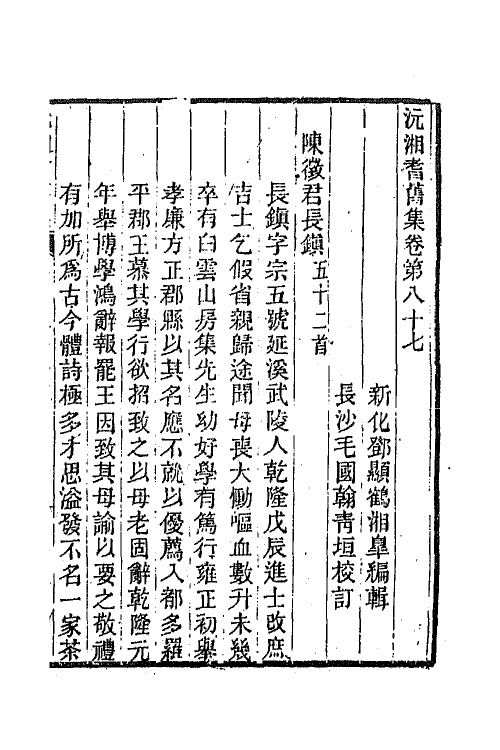 沅湘耆舊集卷第八十七
新化鄧顯鶴湘臯編輯
長沙毛國翰靑垣校訂
陳徵君長鎭五十二首
長鎭字宗五號延溪武陵人乾隆戊辰進士改庶
吉士乞假省親歸途聞母喪大慟嘔血數升未幾
卒有白雲山房集先生幼好學有篤行雍正初舉
孝廉方正郡縣以其名應不就以優薦入都多羅
平郡王慕其學行欲招致之以母老固辭乾隆元
年舉博學鴻辭報罷王因致其母諭以要之敬禮
有加所爲古今體詩極多才思溢發不名一家茶